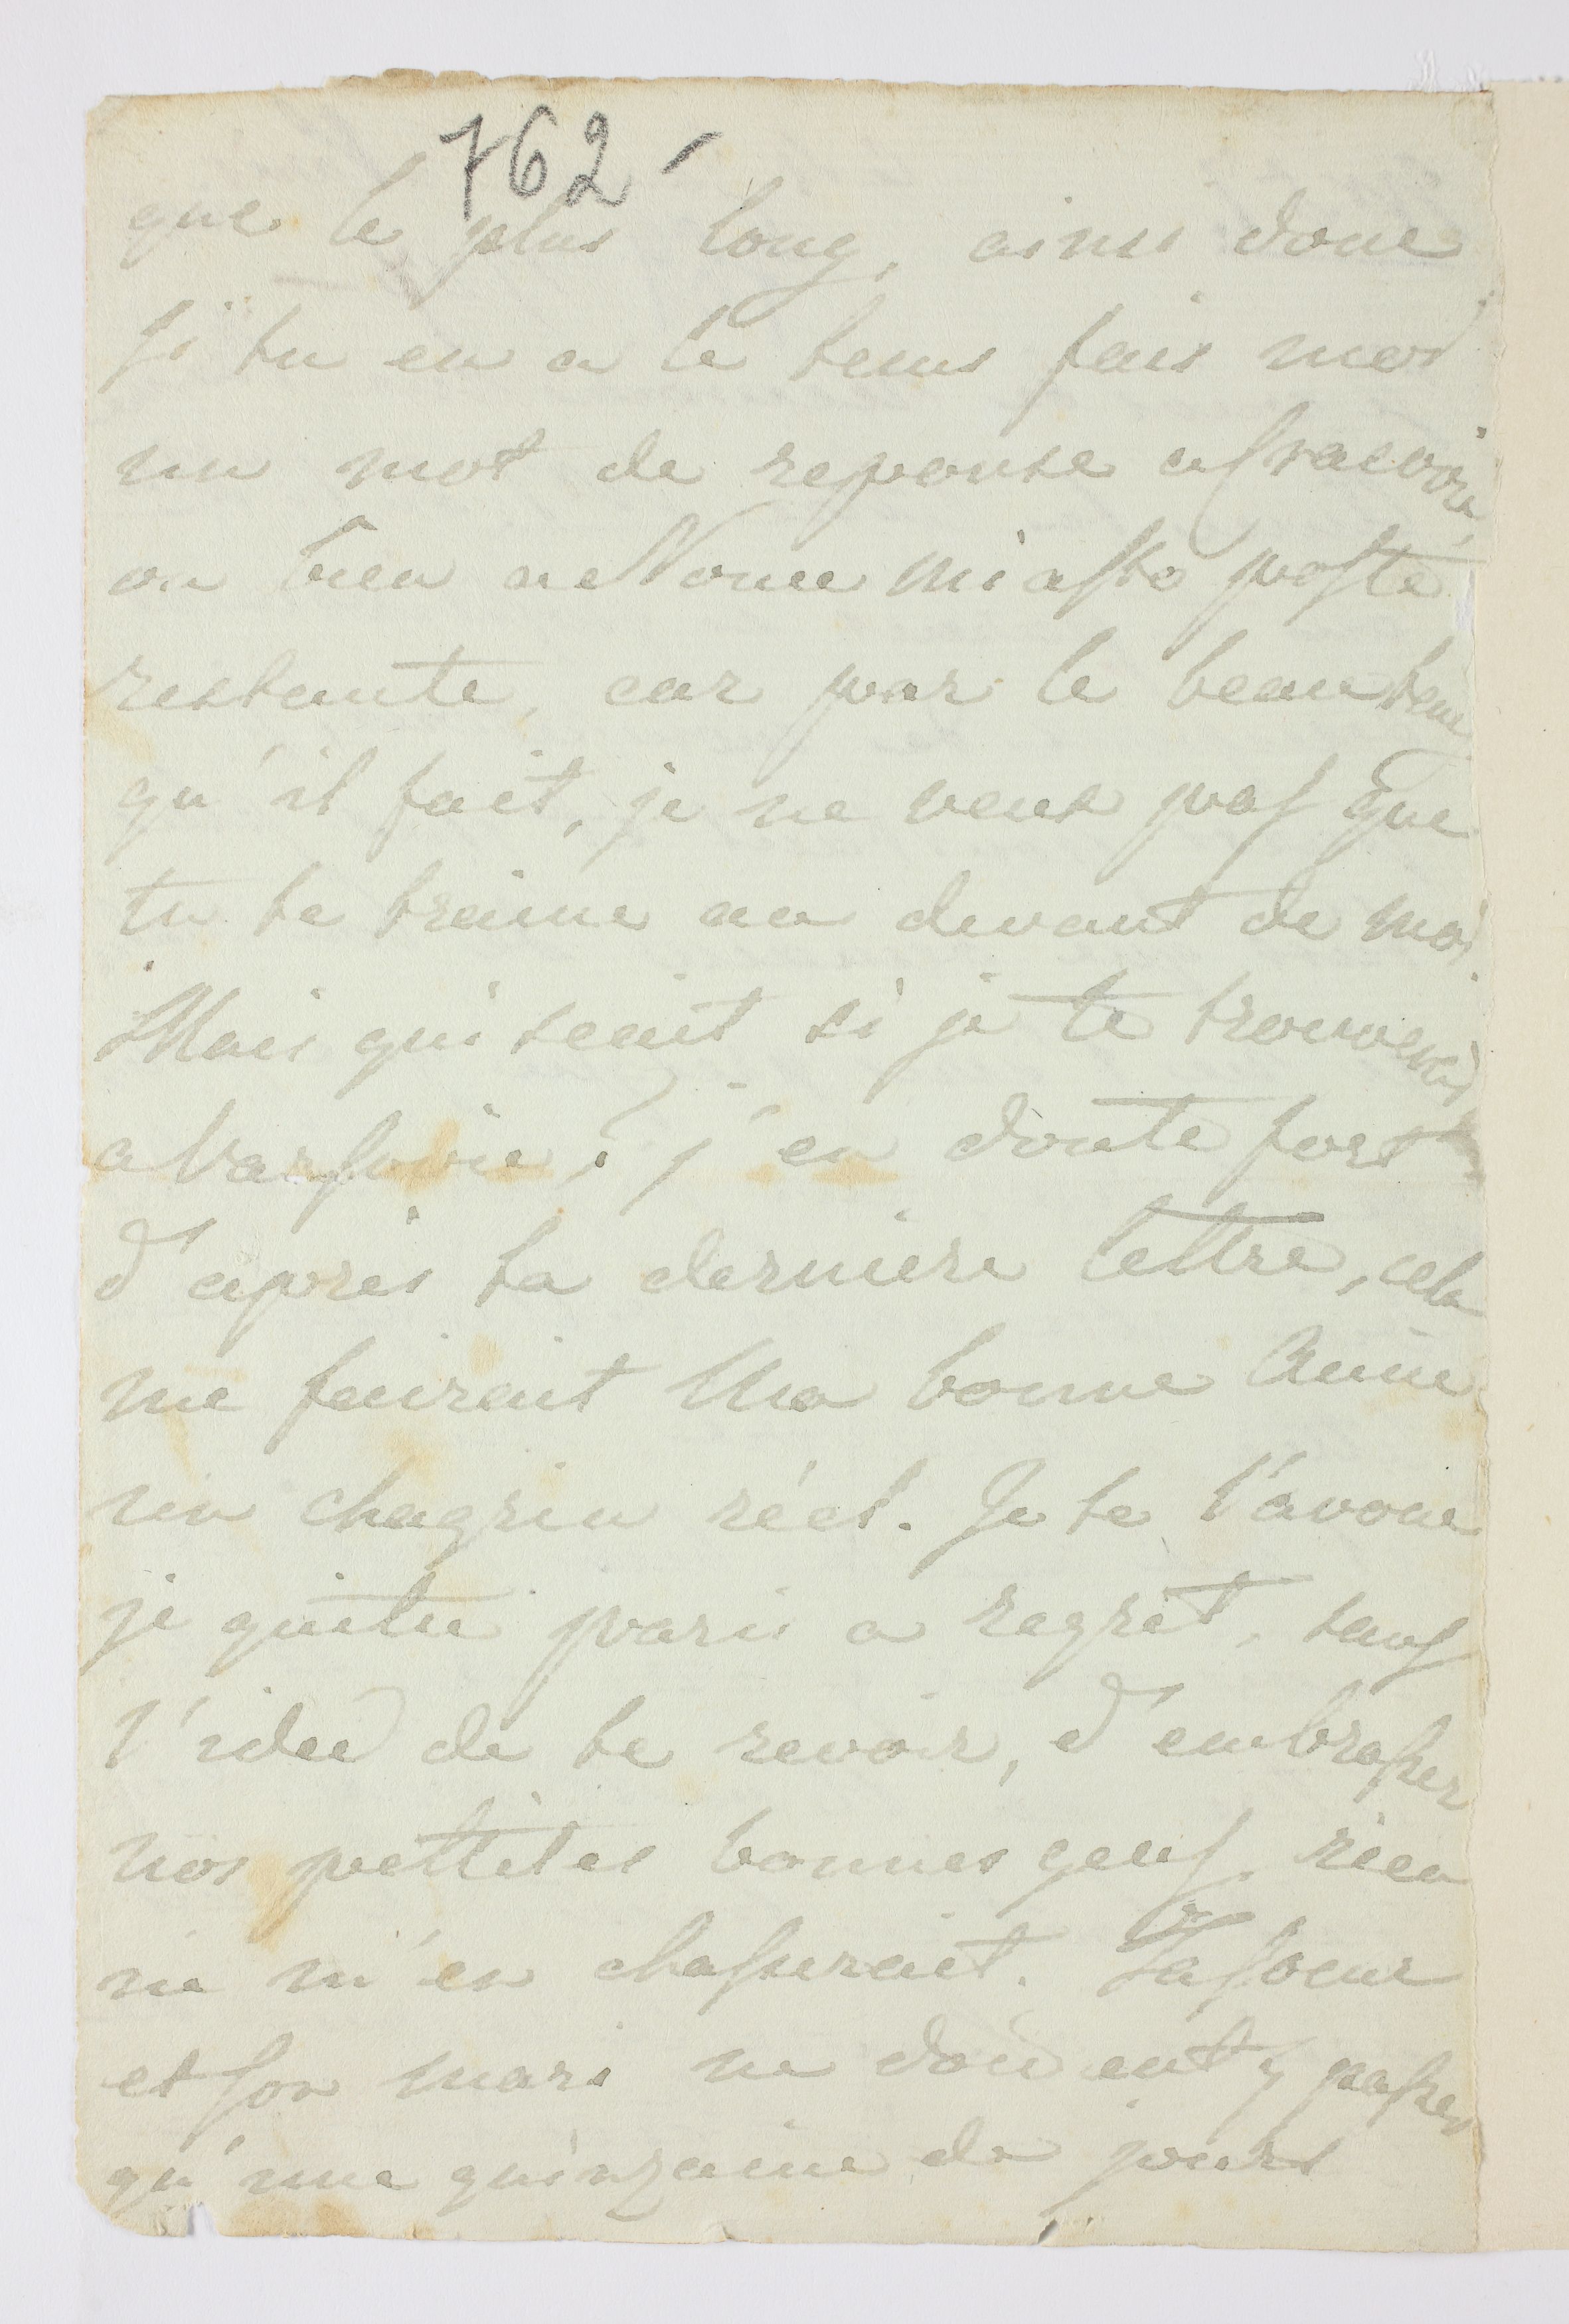 762
que le plus long, ainsi donc
si tu en a le tems fais moi
un mot de reponse a Cracovie,
ou bien a Nove miasto poste
restante, car par le beau tems
qu'il fait, je ne veux pas que
tu te traine au devant de moi.
Mais qui scait si je te trouverai
a Varsovie; j'en doute fort
d'apres ta derniere lettre, cela
me fairait Ma bonne Amie
un chagrin réel. Je te l'avoue
je quitte paris a regret, sans
l'idee de te revoir, d'embrasser
nos pettites bonnes gens, rien
ne m'en chasserait. Ta soeur
et son mari ne doivent y passer
qu'une quinzaine de jours